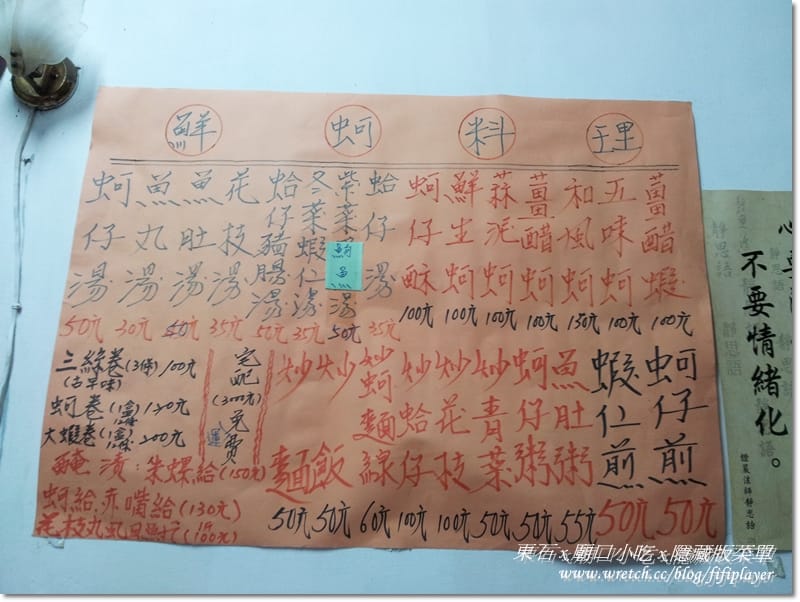 鮮蚵料理
蚵仔湯 50元
魚丸湯 30元
魚肚湯
花枝湯 35元
蛤仔豬腸湯 50元
冬菜蝦仁湯 35元
紫菜魩魚湯 50元
蛤仔湯 35元
蚵仔酥 100元
鮮生蚵 100元
蒜泥蚵 100元
薑醋蚵 100元
和風蚵 130元
五味蚵 100元
薑醋蝦 100元
三絲卷(3條)100元
(古早味)
蚵卷(1盒12條)120元
大蝦卷(1盒)200元
醃漬:朱螺給(150元)
蚵給.赤嘴給(130元)
花枝丸虱目魚(1斤100元)
宅配(3000元)免運費
炒麵 50元
炒飯 50元
炒蚵麵線 60元
炒蛤仔 100元
炒花枝 100元
炒青菜 50元
蚵仔粥 50元
魚肚粥 55元
蝦仁煎 50元
蚵仔煎 50元
不要情緒化。
證嚴法師靜思語
東石x廟口小吃x隱藏版菜單
www.wretch.cc/blog/fifiplayer